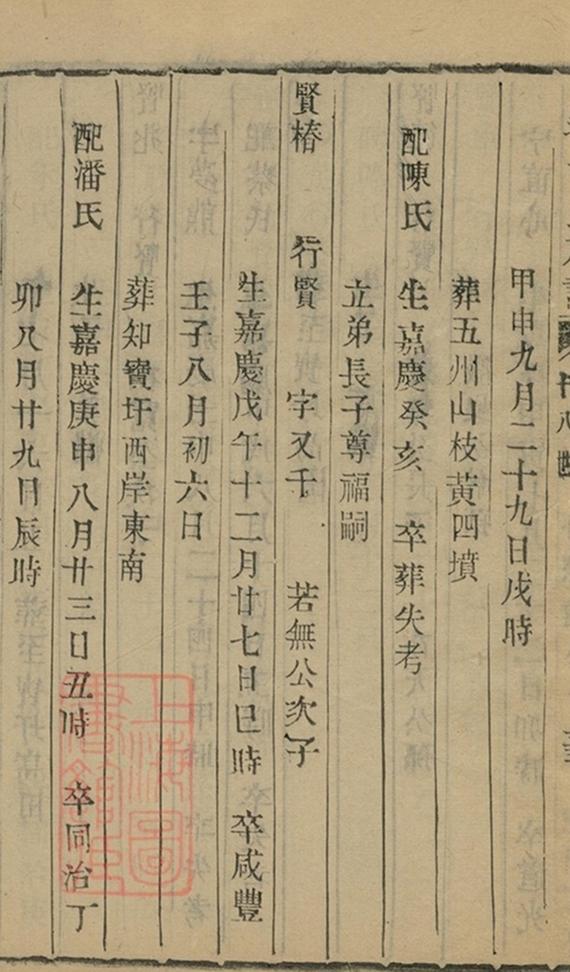 甲申九月二十九日戌時
葬五州山枝黃四墳
配陳氏 生嘉慶癸亥 卒葬失考
立弟長子尊福嗣
賢椿 行賢 字又千 若無公次子
生嘉慶戊午十二月廿七日巳時 卒咸豐
壬子八月初六日
葬知寶圩西岸東南
配潘氏 生嘉慶庚申八月廿三日丑時 卒同治丁
卯八月廿九日辰時